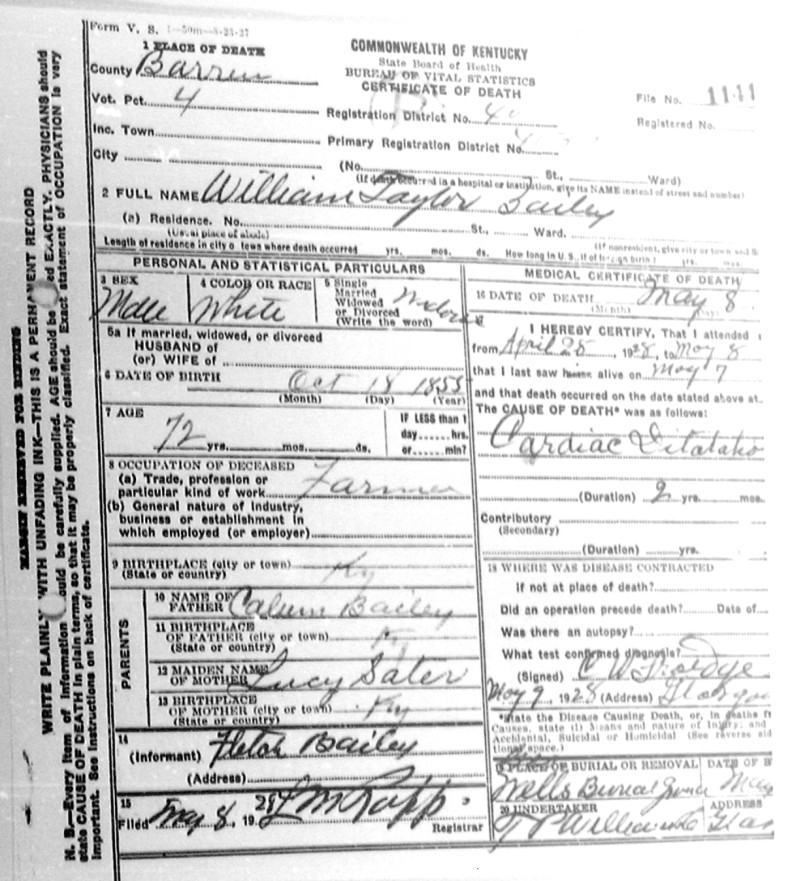 Form V. S. 1-50m-8-23-27
1 PLACE OF DEATH
County Barren
Vot. Pct. 4
Inc. Town
City
COMMONWEALTH OF KENTUCKY
State Board of Health
BUREAU OF VITAL STATISTICS
CERTIFICATE OF DEATH
File No. 1141
Registered No.
Registration District No. 40
Primary Registration District No.
(No. St., Ward)
(If death occurred in a hospital or institution, give its NAME instead of street and number)
2 FULL NAME William Taylor Bailey
(a) Residence. No. St., Ward.
(Usual place of abode) (If nonresident, give city or town and S
Length of residence in city o town where death occurred yrs. mos. ds. How long in U. S., if of foreign birth? yrs. mos.
PERSONAL AND STATISTICAL PARTICULARS
3 SEX
Male
4 COLOR OR RACE
White
5 Single
Married
Widowed
or Divorced
(Write the word)
5a If married, widowed, or divorced
HUSBAND of
(or) WIFE of
6 DATE OF BIRTH Oct 18 1855
(Month) (Day) (Year)
7 AGE
72 yrs. mos. ds.
IF LESS than 1
day hrs.
or min?
8 OCCUPATION OF DECEASED
(a) Trade, profession or
particular kind of work Farmer
(b) General nature of Industry,
business or establishment in
which employed (or employer)
9 BIRTHPLACE (city or town)
(State or country) Ky
PARENTS
10 NAME OF
FATHER Bailey
11 BIRTHPLACE
OF FATHER (city or town)
(State or country) Ky
12 MAIDEN NAME
OF MOTHER Lucy Sater
13 BIRTHPLACE
OF MOTHER (city or town)
(State or country) Ky
14
(Informant) Bailey
(Address)
15
Filed May 8 19 28
Registrar
MEDICAL CERTIFICATE OF DEATH
16 DATE OF DEATH May 8
(Month)
I HEREBY CERTIFY, That I attended
from April 28, 1928, to May 8
that I last saw him alive on May 7
and that death occurred on the date stated above at
The CAUSE OF DEATH* was as follows:
Cardiac
(Duration) 2 yrs. mos.
Contributory
(Secondary)
(Duration) yrs.
18 WHERE WAS DISEASE CONTRACTED
If not at place of death?
Did an operation precede death? Date of
Was there an autopsy?
What test confirmed diagnosis?
(Signed) C W
May 9, 1928 (Address)
*State the Disease Causing Death, or, in deaths f
Causes, state (1) Means and nature of Injury; and
Accidental, Suicidal or Homicidal (See reverse sid
tional space.)
PLACE OF BURIAL OR REMOVAL
Wells Burial
DATE OF B
May
20 UNDERTAKER
ADDRESS
MARGIN RESERVED FOR BINDING
WRITE PLAINLY WITH UNFADING INK—THIS IS A PERMANENT RECORD
N. B.—Every item of information ould be carefully supplied. AGE should be ed EXACTLY. PHYSICIANS should
state CAUSE OF DEATH in plain terms, so that it may be properly classified. Exact statement of OCCUPATION is very
important. See Instructions on back of certificate.